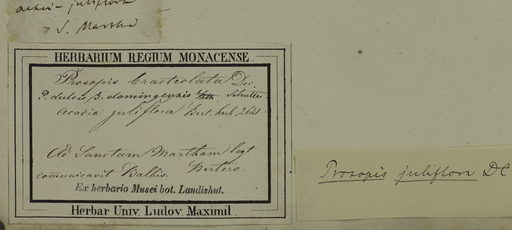 juliflora
S. Martha
HERBARIUM REGIUM MONACENSE.
Prosopis bracteolata Dec.
P. dulcis β. domingensis
Acacia juliflora Bert. herb. 2641
Ad Sanctam Martham legt
communicavit Balbis. Bertero.
Ex herbario Musei bot. Landishut.
Herbar Univ. Ludov Maximil
Prosopis juliflora DC